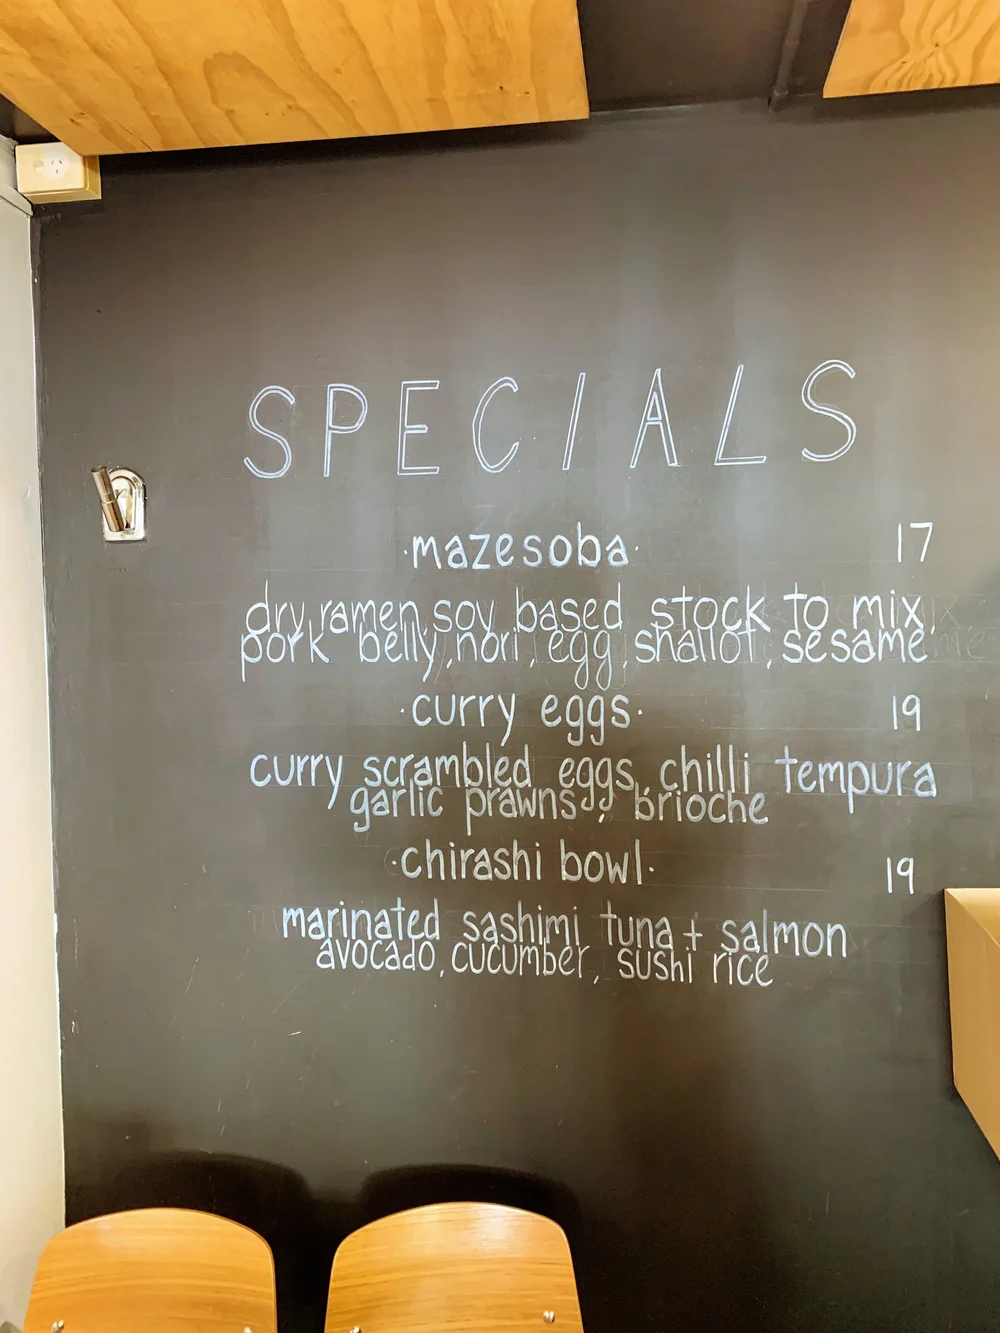 SPECIALS
·mazesoba· 17
dry ramen, soy based stock to mix,
pork belly, nori, egg, shallot, sesame
·curry eggs· 19
curry scrambled eggs, chilli tempura
garlic prawns, brioche
·chirashi bowl· 19
marinated sashimi tuna + salmon
avocado, cucumber, sushi rice